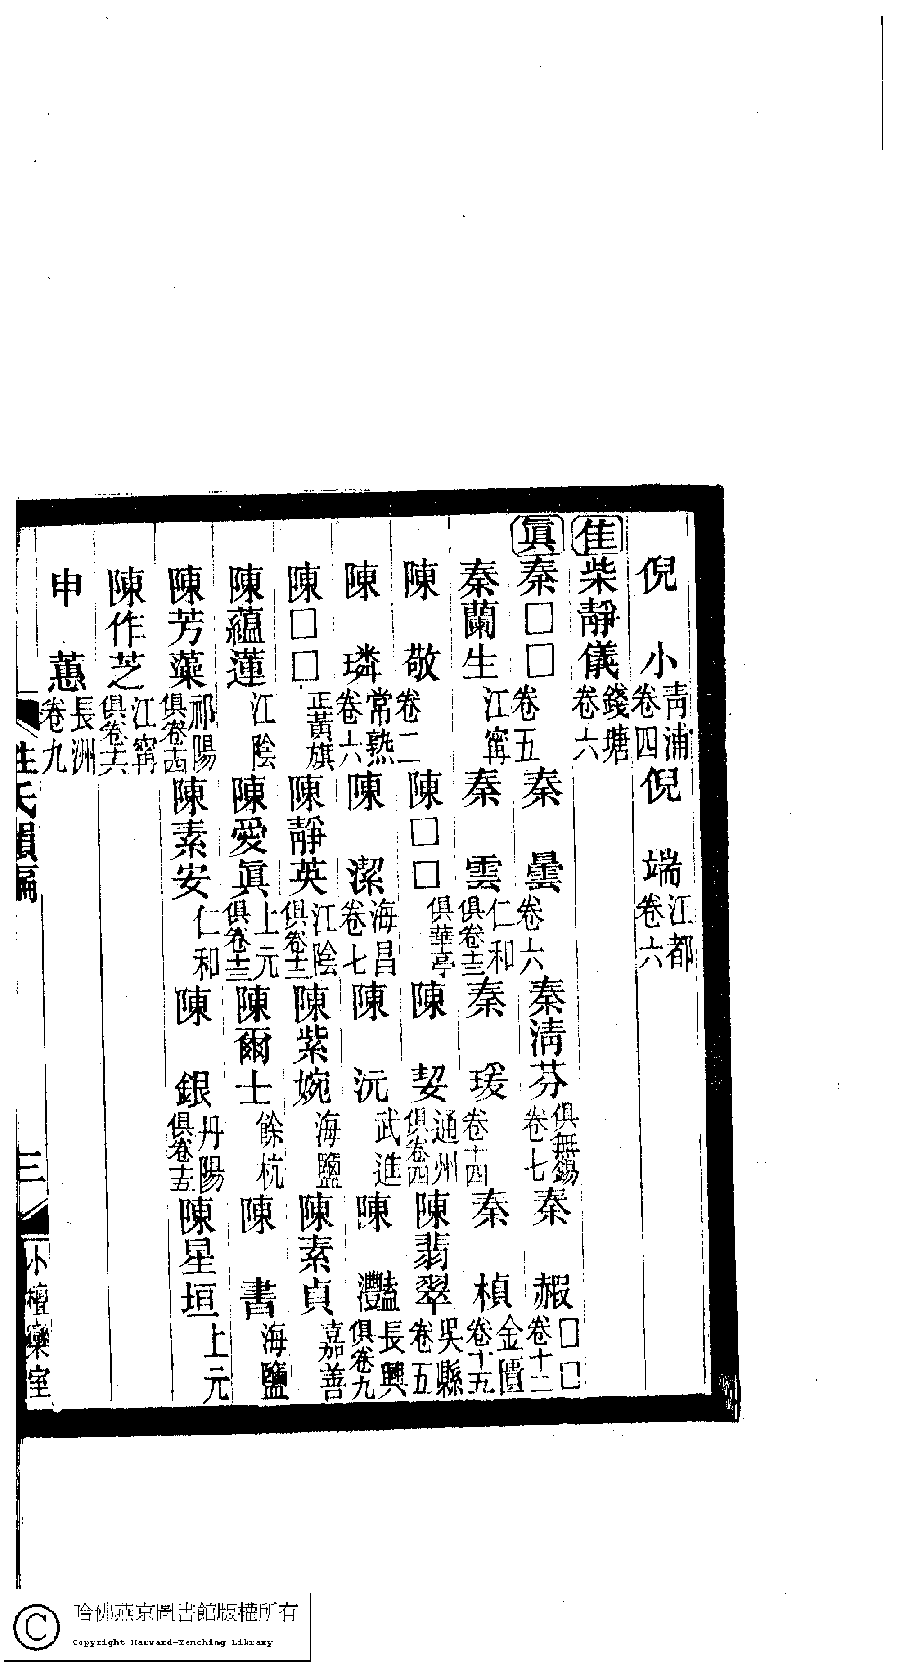 倪小青浦卷四倪端江都卷六
佳柴靜儀錢塘卷六
眞秦□□卷五秦曇卷六秦淸芬俱無錫卷七秦赧□□卷十二
秦蘭生江甯秦雲仁和俱卷十三秦瑗卷十四秦楨金匱卷十五
陳敬卷二陳□□俱華亭陳契通州俱卷四陳翡翠吳縣卷五
陳璘常熟卷六陳潔海昌卷七陳沅武進陳灩長興俱卷九
陳□□正黃旗陳靜英江陰俱卷十二陳紫婉海鹽陳素貞嘉善
陳蘊蓮江陰陳愛眞上元俱卷十三陳爾士餘杭陳書海鹽
陳芳藻祁陽俱卷十四陳素安仁和陳銀丹陽俱卷十五陳星垣上元
陳作芝江甯俱卷十六
申蕙長洲卷九
姓氏韻編
三
小檀欒室
哈佛燕京圖書館版權所有
Copyright Harvard-Yenching Library